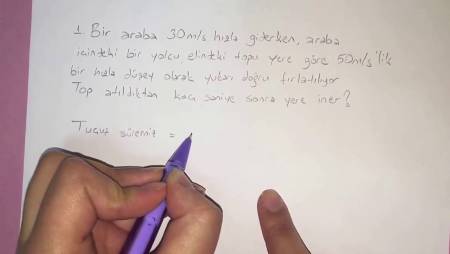 1. Bir araba 30m/s hızla giderken, araba
içinteki bir yolcu elinteki topu yere göre 50m/s'lik
bir hızla düşey olarak yukarı doğru fırlatılıyor
Top atıldıktan kaç saniye sonra yere iner?
Tuçuş süremit =